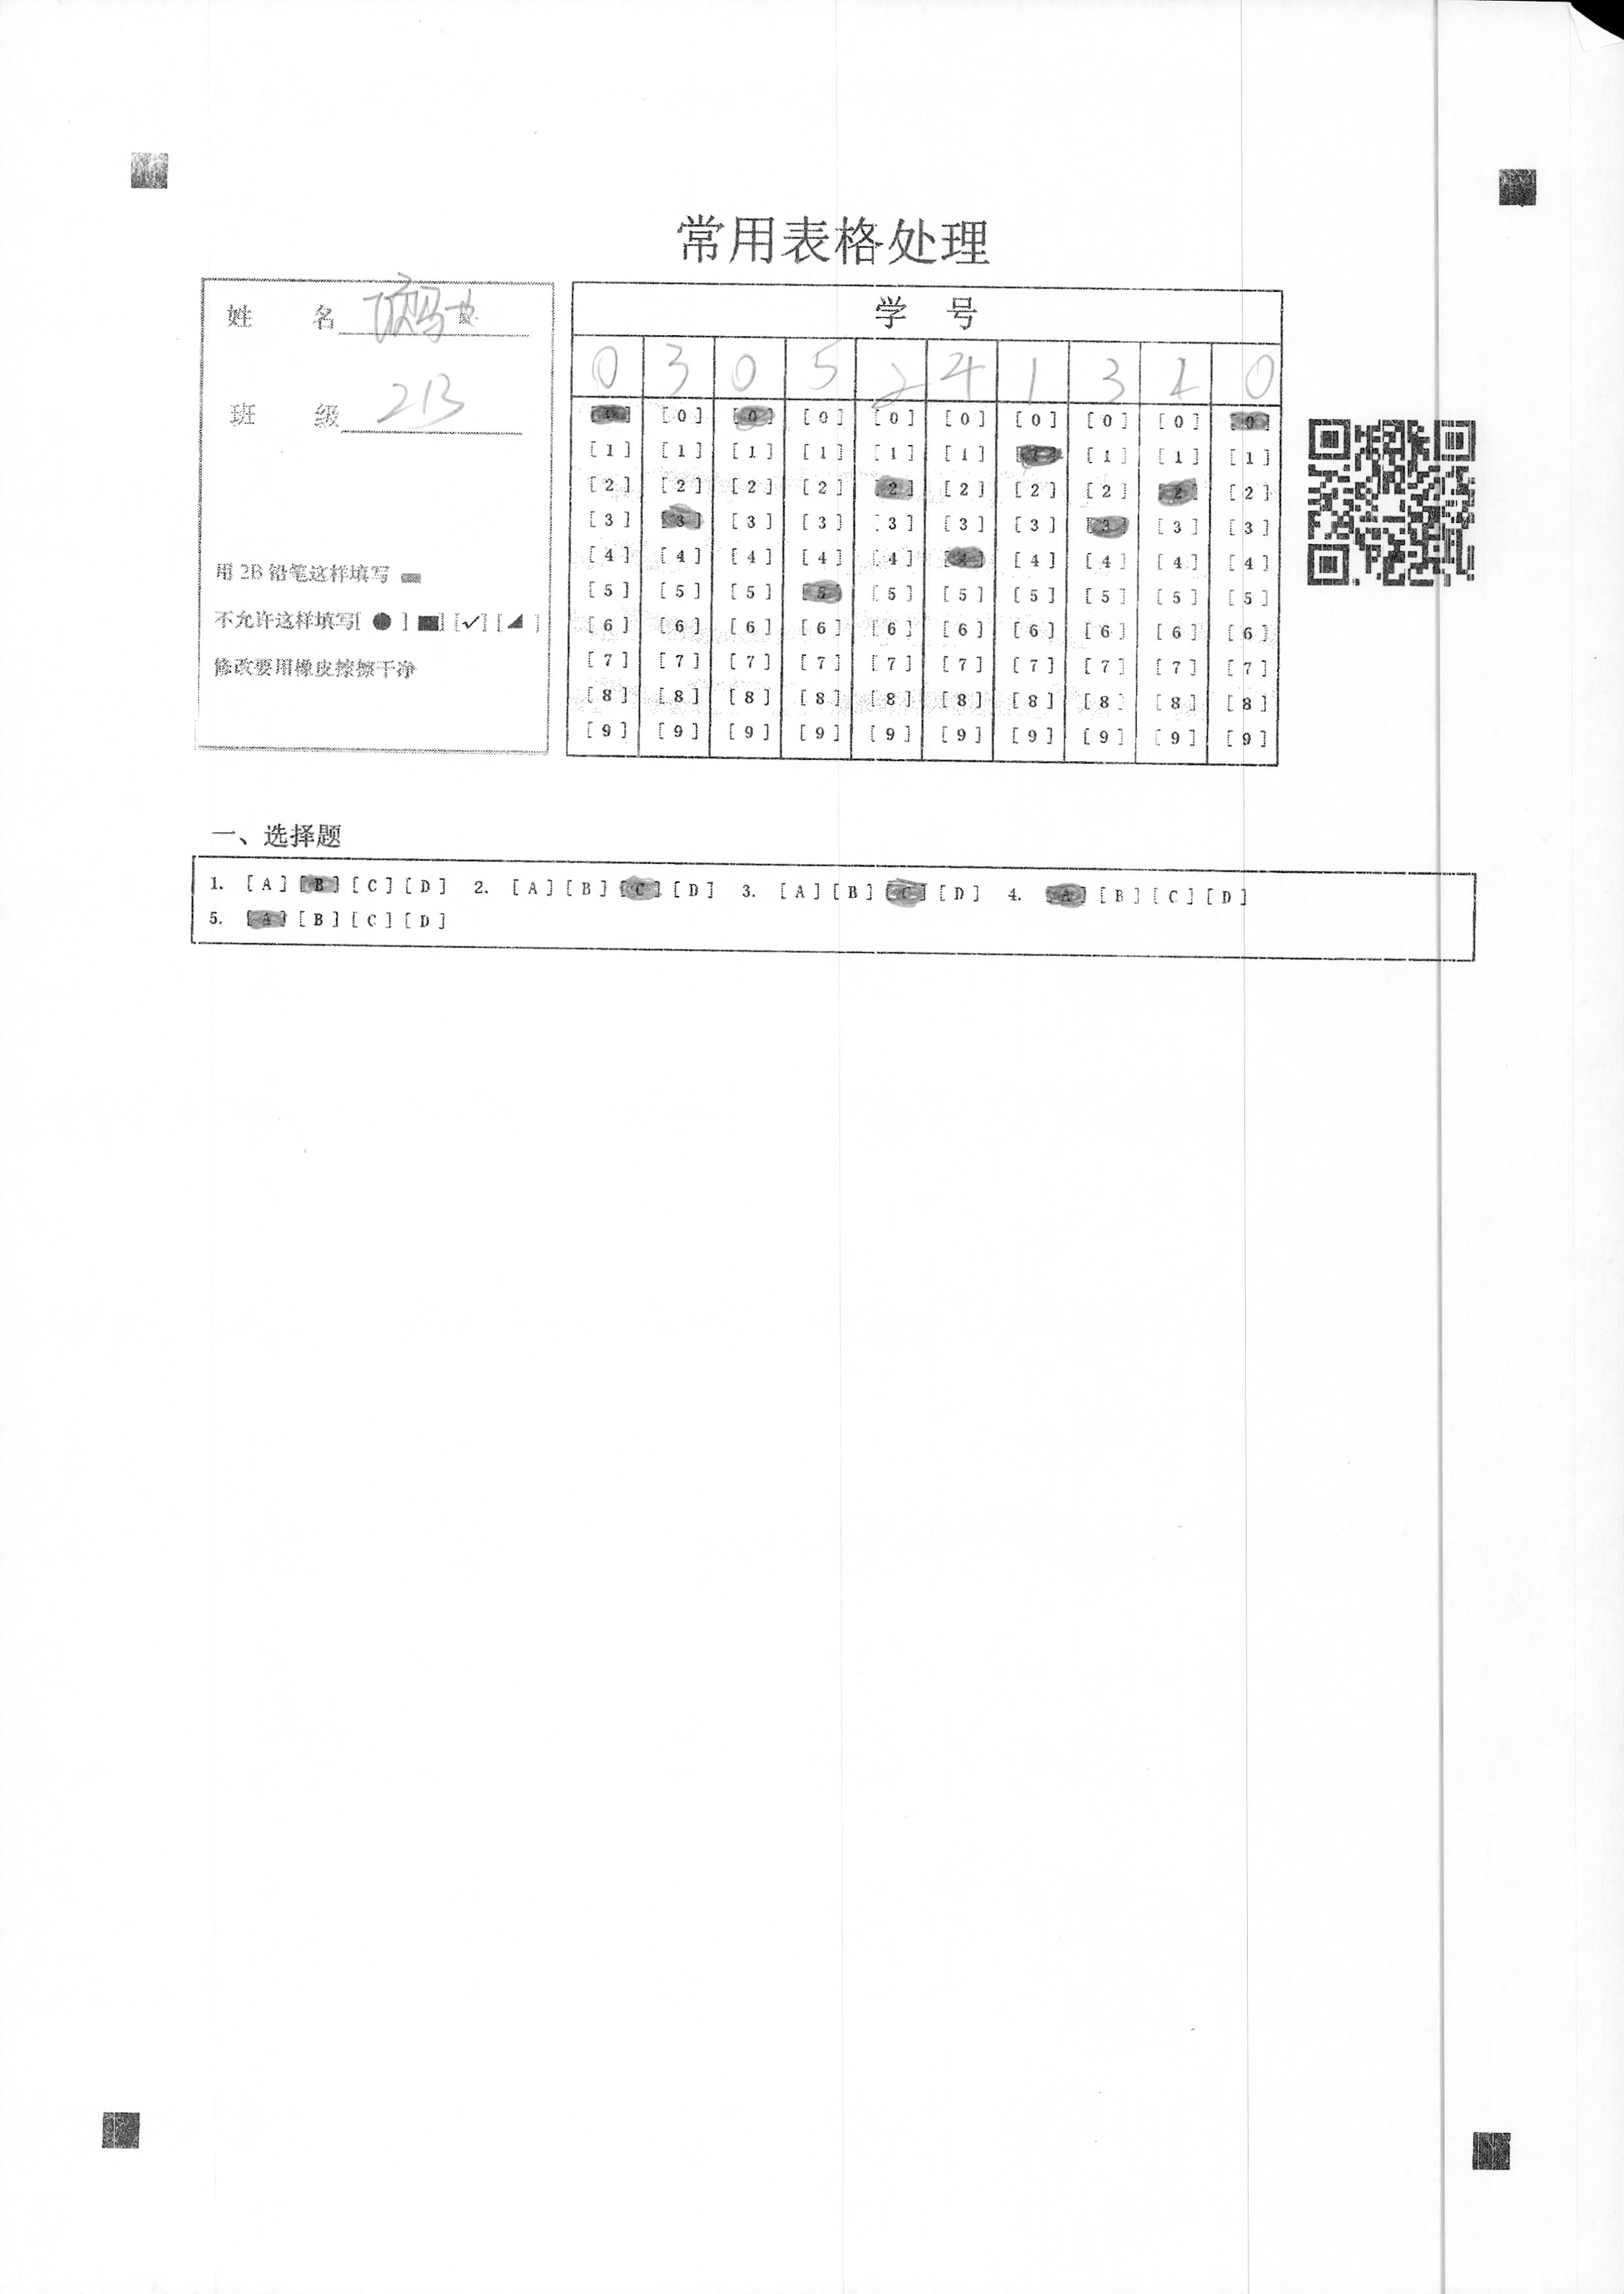 常用表格处理
姓 名
班 级 213
用 2B 铅笔这样填写
不允许这样填写[ ● ] [■] [✓] [◢ ]
修改要用橡皮擦擦干净
学 号
0 3 0 5 2 4 1 3 2 0
[0] [0] [0] [0] [0] [0] [0] [0] [0] [0]
[1] [1] [1] [1] [1] [1] [1] [1] [1] [1]
[2] [2] [2] [2] [2] [2] [2] [2] [2] [2]
[3] [3] [3] [3] [3] [3] [3] [3] [3] [3]
[4] [4] [4] [4] [4] [4] [4] [4] [4] [4]
[5] [5] [5] [5] [5] [5] [5] [5] [5] [5]
[6] [6] [6] [6] [6] [6] [6] [6] [6] [6]
[7] [7] [7] [7] [7] [7] [7] [7] [7] [7]
[8] [8] [8] [8] [8] [8] [8] [8] [8] [8]
[9] [9] [9] [9] [9] [9] [9] [9] [9] [9]
一、选择题
1. [A] [B] [C] [D] 2. [A] [B] [C] [D] 3. [A] [B] [C] [D] 4. [A] [B] [C] [D]
5. [A] [B] [C] [D]